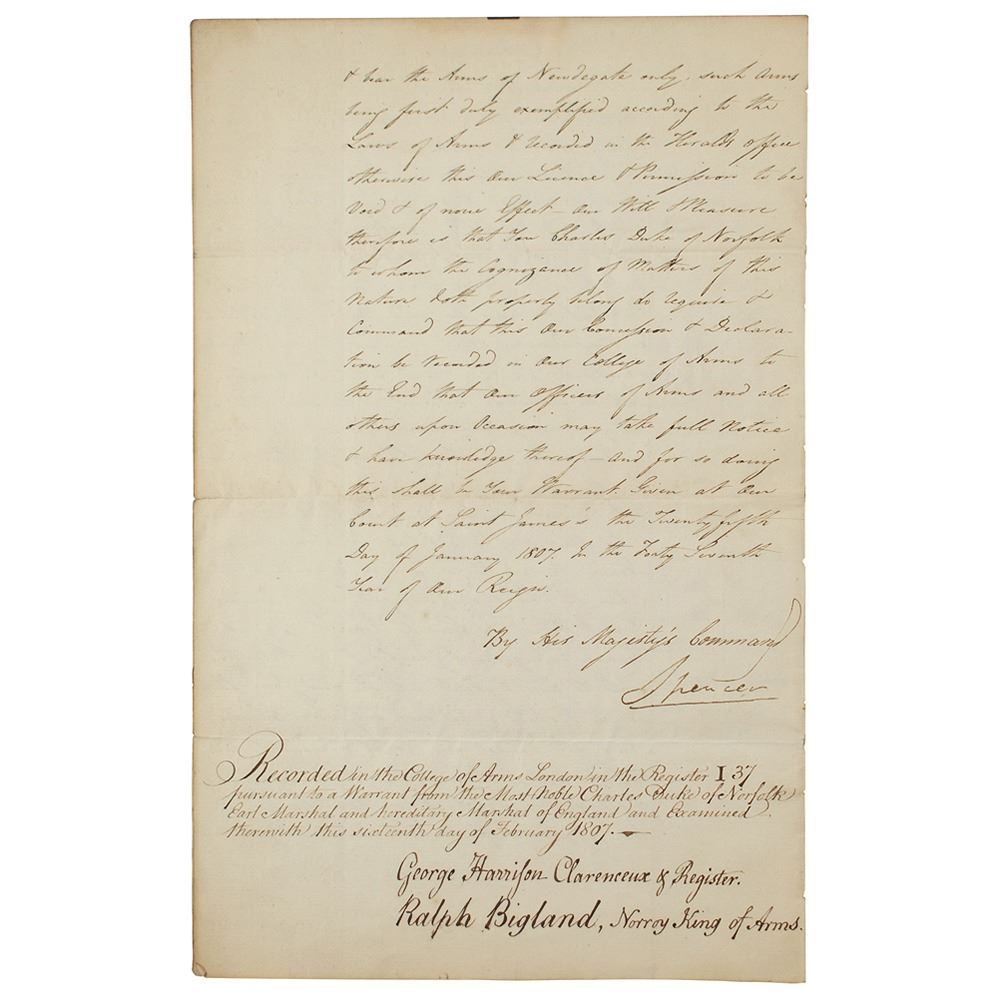 & bear the Arms of Newdegate only, such Arms
being first duly exemplified according to the
Laws of Arms & recorded in the Heralds Office
otherwise this Our Licence & Permission to be
Void & of none Effect – Our Will & Pleasure
therefore is that You Charles Duke of Norfolk
to whom the Cognizance of Matters of this
Nature doth properly belong do require &
Command that this Our Concession & Declara-
tion be recorded in Our College of Arms to
the End that Our Officers of Arms and all
others upon Occasion may take full Notice
& have knowledge thereof – and for so doing
this shall be Your Warrant. Given at Our
Court at Saint James's the Twenty fifth
Day of January 1807. In the Forty Seventh
Year of Our Reign.
By His Majesty's Command
Spencer
Recorded in the College of Arms London in the Register I 37
pursuant to a Warrant from the Most Noble Charles Duke of Norfolk
Earl Marshal and hereditary Marshal of England and Examined
therewith this sixteenth day of February 1807.
George Harrison Clarenceux & Register.
Ralph Bigland, Norroy King of Arms.